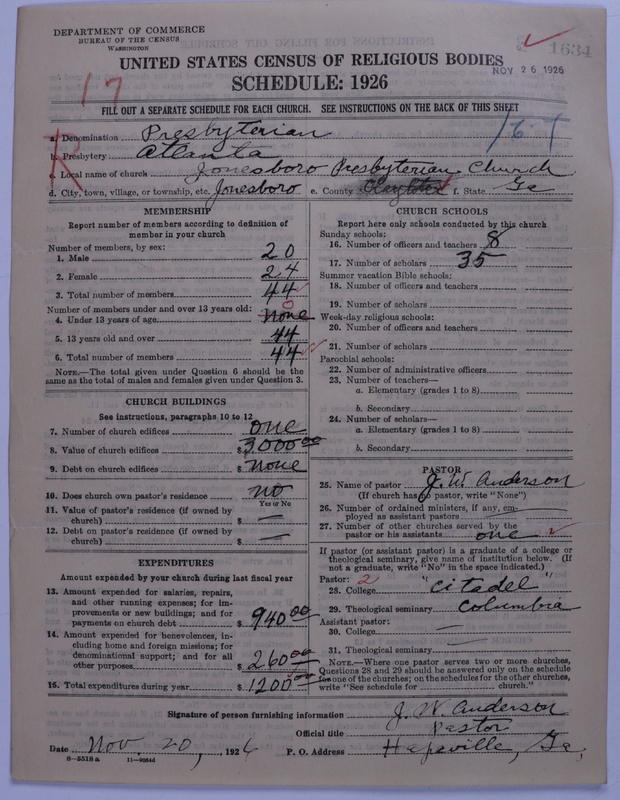 DEPARTMENT OF COMMERCE
BUREAU OF THE CENSUS
WASHINGTON
1634
UNITED STATES CENSUS OF RELIGIOUS BODIES
NOV 26 1926
SCHEDULE: 1926
17
FILL OUT A SEPARATE SCHEDULE FOR EACH CHURCH. SEE INSTRUCTIONS ON THE BACK OF THIS SHEET
R
a. Denomination Presbyterian
b. Presbytery Atlanta
c. Local name of church Jonesboro Presbyterian Church
d. City, town, village, or township, etc. Jonesboro e. County Clayton f. State Ga
MEMBERSHIP
Report number of members according to definition of
member in your church
Number of members, by sex:
1. Male 20
2. Female 24
3. Total number of members 44
Number of members under and over 13 years old:
4. Under 13 years of age None 0
5. 13 years old and over 44
6. Total number of members 44
NOTE.—The total given under Question 6 should be
same as the total of males and females given under Question 3.
CHURCH BUILDINGS
See instructions, paragraphs 10 to 12
7. Number of church edifices one
8. Value of church edifices $ 3,000 00
9. Debt on church edifices $ None
10. Does church own pastor's residence no
Yes or No
11. Value of pastor's residence (if owned by
church) $ —
12. Debt on pastor's residence (if owned by
church) $ —
EXPENDITURES
Amount expended by your church during last fiscal year
13. Amount expended for salaries, repairs,
and other running expenses; for im-
provements or new buildings; and for
payments on church debt $ 940 00
14. Amount expended for benevolences, in-
cluding home and foreign missions; for
denominational support; and for all
other purposes $ 260 00
15. Total expenditures during year $ 1200 00
CHURCH SCHOOLS
Report here only schools conducted by this church
Sunday schools:
16. Number of officers and teachers 8
17. Number of scholars 35
Summer vacation Bible schools:
18. Number of officers and teachers
19. Number of scholars
Week-day religious schools:
20. Number of officers and teachers
21. Number of scholars
Parochial schools:
22. Number of administrative officers
23. Number of teachers—
a. Elementary (grades 1 to 8)
b. Secondary
24. Number of scholars—
a. Elementary (grades 1 to 8)
b. Secondary
PASTOR
25. Name of pastor J. W. Anderson
(If church has no pastor, write "None")
26. Number of ordained ministers, if any, em-
ployed as assistant pastors —
27. Number of other churches served by the
pastor or his assistants one
If pastor (or assistant pastor) is a graduate of a college or
theological seminary, give name of institution below. (If
not a graduate, write "No" in the space indicated.)
Pastor: 2
28. College "Citadel"
29. Theological seminary Columbia
Assistant pastor:
30. College —
31. Theological seminary —
NOTE.—Where one pastor serves two or more churches,
Questions 28 and 29 should be answered only on the schedule
for one of the churches; on the schedules for the other churches,
write "See schedule for church."
Signature of person furnishing information J. W. Anderson
Official title Pastor
Date Nov. 20, 1926 P. O. Address Hapeville, Ga.
8—5518 a